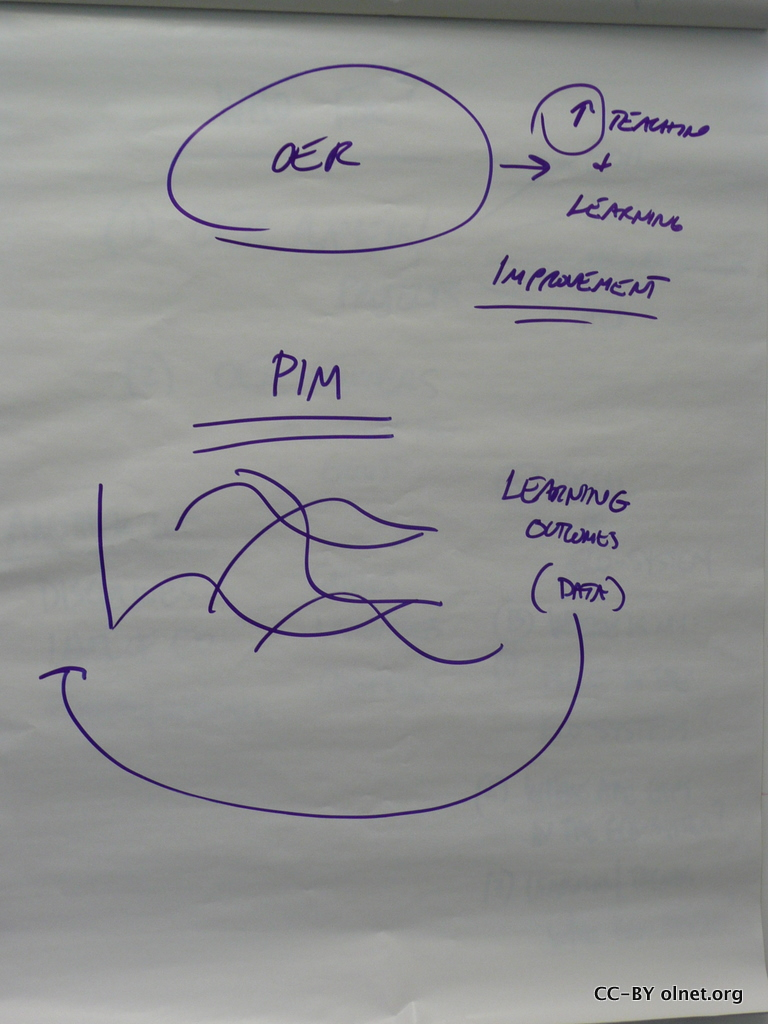 OER
→ ↑ TEACHING
+
LEARNING
IMPROVEMENT
PIM
LEARNING
OUTCOMES
(DATA)
CC-BY olnet.org